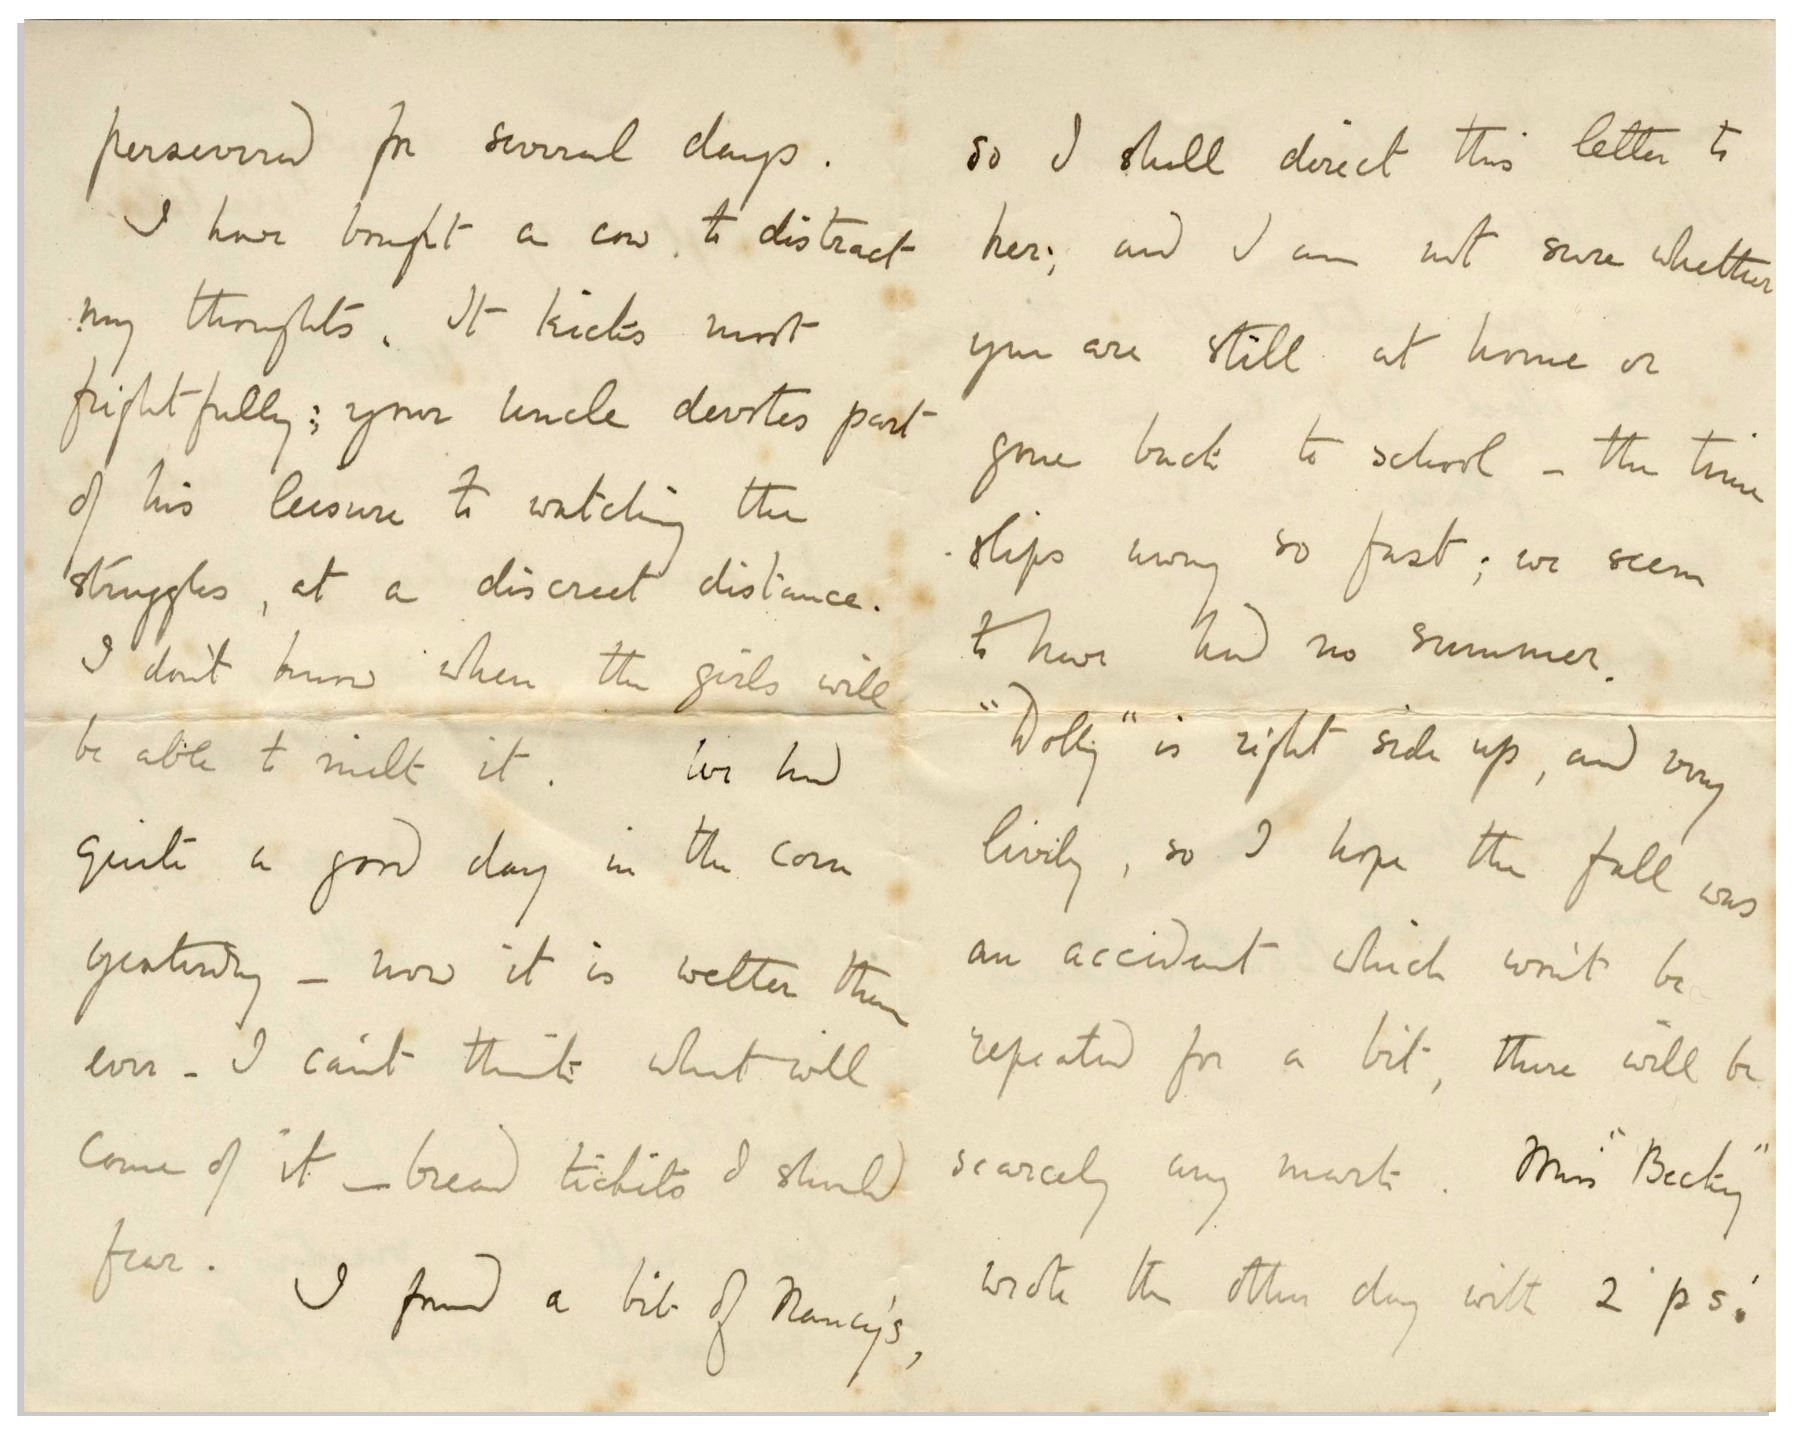 persevered for several days.
I have bought a cow, to distract
my thoughts. It kicks most
frightfully; your Uncle devotes part
of his leisure to watching the
struggles, at a discreet distance.
I don't know when the girls will
be able to milk it. We had
quite a good day in the corn
yesterday – now it is wetter than
ever – I can't think what will
come of it – bread tickets I should
fear.
I found a bit of Nancy's,
so I shall direct this letter to
her; and I am not sure whether
you are still at home or
gone back to school – the time
slips away so fast; we seem
to have had no summer.
"Dolly" is right side up, and very
lively, so I hope the fall was
an accident which won't be
repeated for a bit, there will be
scarcely any mark. Miss "Becky"
wrote the other day with 2 ps.'